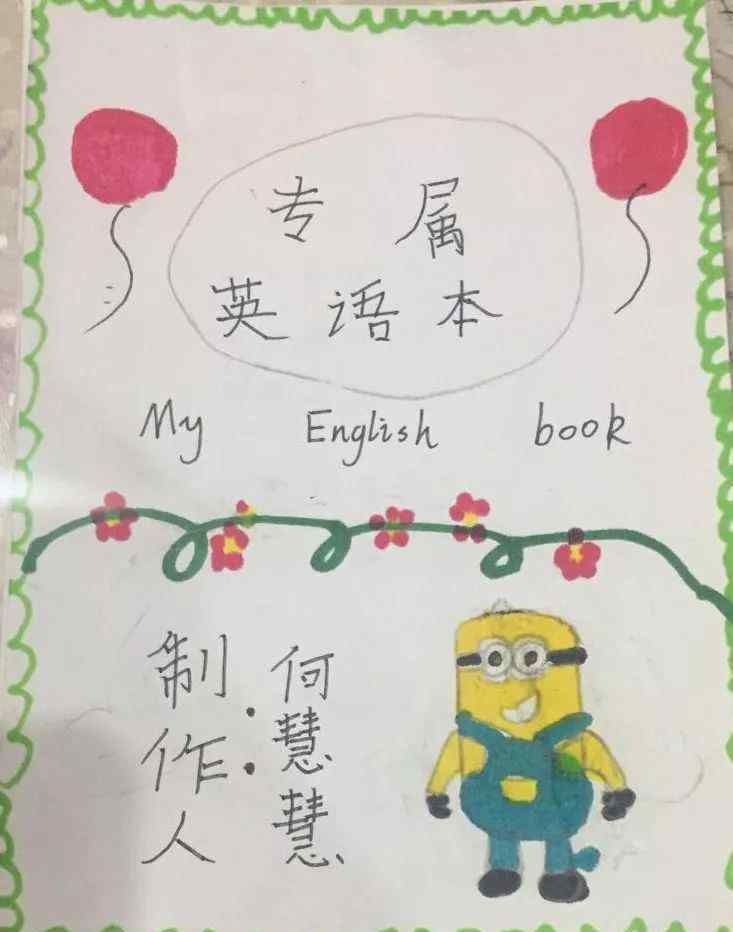 专属
英语本
My English book
制作人:
何慧慧